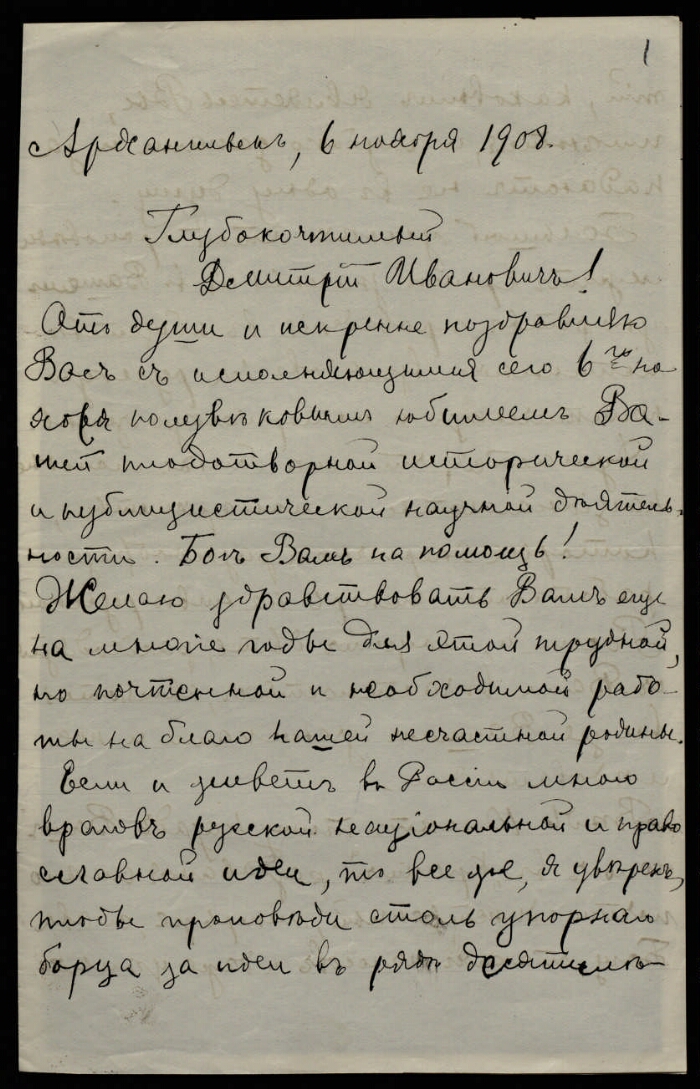 1
Архангельскъ, 6 ноября 1908.
Глубокочтимый
Дмитрій Ивановичъ!
Отъ души и искренне поздравляю
Васъ съ исполняющимся сего 6го но-
ября полувѣковымъ юбилеемъ Ва-
шей плодотворной исторической
и публицистической научной дѣятель-
ности. Богъ Вамъ на помощь!
Желаю здравствовать Вамъ еще
на многіе годы для этой трудной,
но почтенной и необходимой рабо-
ты на благо нашей несчастной родины.
Если и живетъ въ Россіи много
враговъ русской національной и право
славной идеи, то все же, я увѣренъ,
плоды проповѣди столь упорнаго
борца за идеи въ рядѣ десятилѣ-